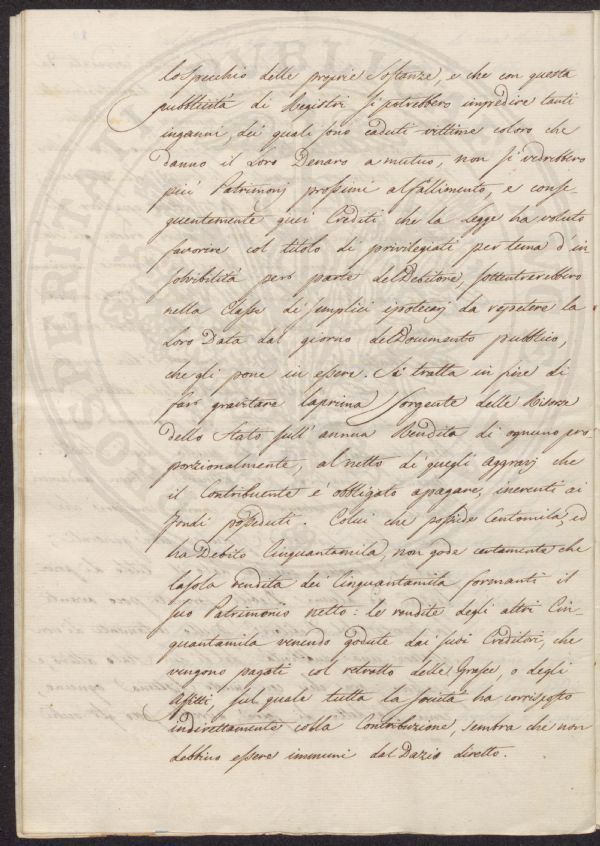 lo specchio delle proprie Sostanze, e che con questa
pubblicità di Registri si potrebbero impedire tanti
inganni, dei quali sono caduti vittime coloro che
danno il Loro Denaro a mutuo, non si vedrebbero
più Patrimonj prossimi al fallimento, e conse
quentemente quei Crediti che la Legge ha voluto
favorire col titolo di privilegiati per tema d'in
solvibilità per parte del Debitore, sottentrarebbero
nella Classe di semplici ipotecarj da repetere la
Loro Data dal giorno del Documento pubblico,
che gli pone in essere. Si tratta in fine di
far gravitare la prima Sorgente delle Risorse
dello Stato sull'annua Rendita di ognuno pro
porzionalmente, al netto di quegli Aggravj che
il Contribuente è obbligato a pagare, inerenti ai
fondi posseduti. Colui che possiede Centomila, ed
ha Debito Cinquantamila, non gode certamente che
la sola rendita dei Cinquantamila formanti il
suo Patrimonio netto: le rendite degli altri Cin
quantamila venendo godute dai suoi Creditori, che
vengono pagati col retratto delle Grasce, o degli
Affitti, sul quale tutta la Società ha corrisposto
indirettamente colla Contribuzione, sembra che non
debbino essere immuni dal Dazio diretto.
PROSPERITATI PUBLICAE